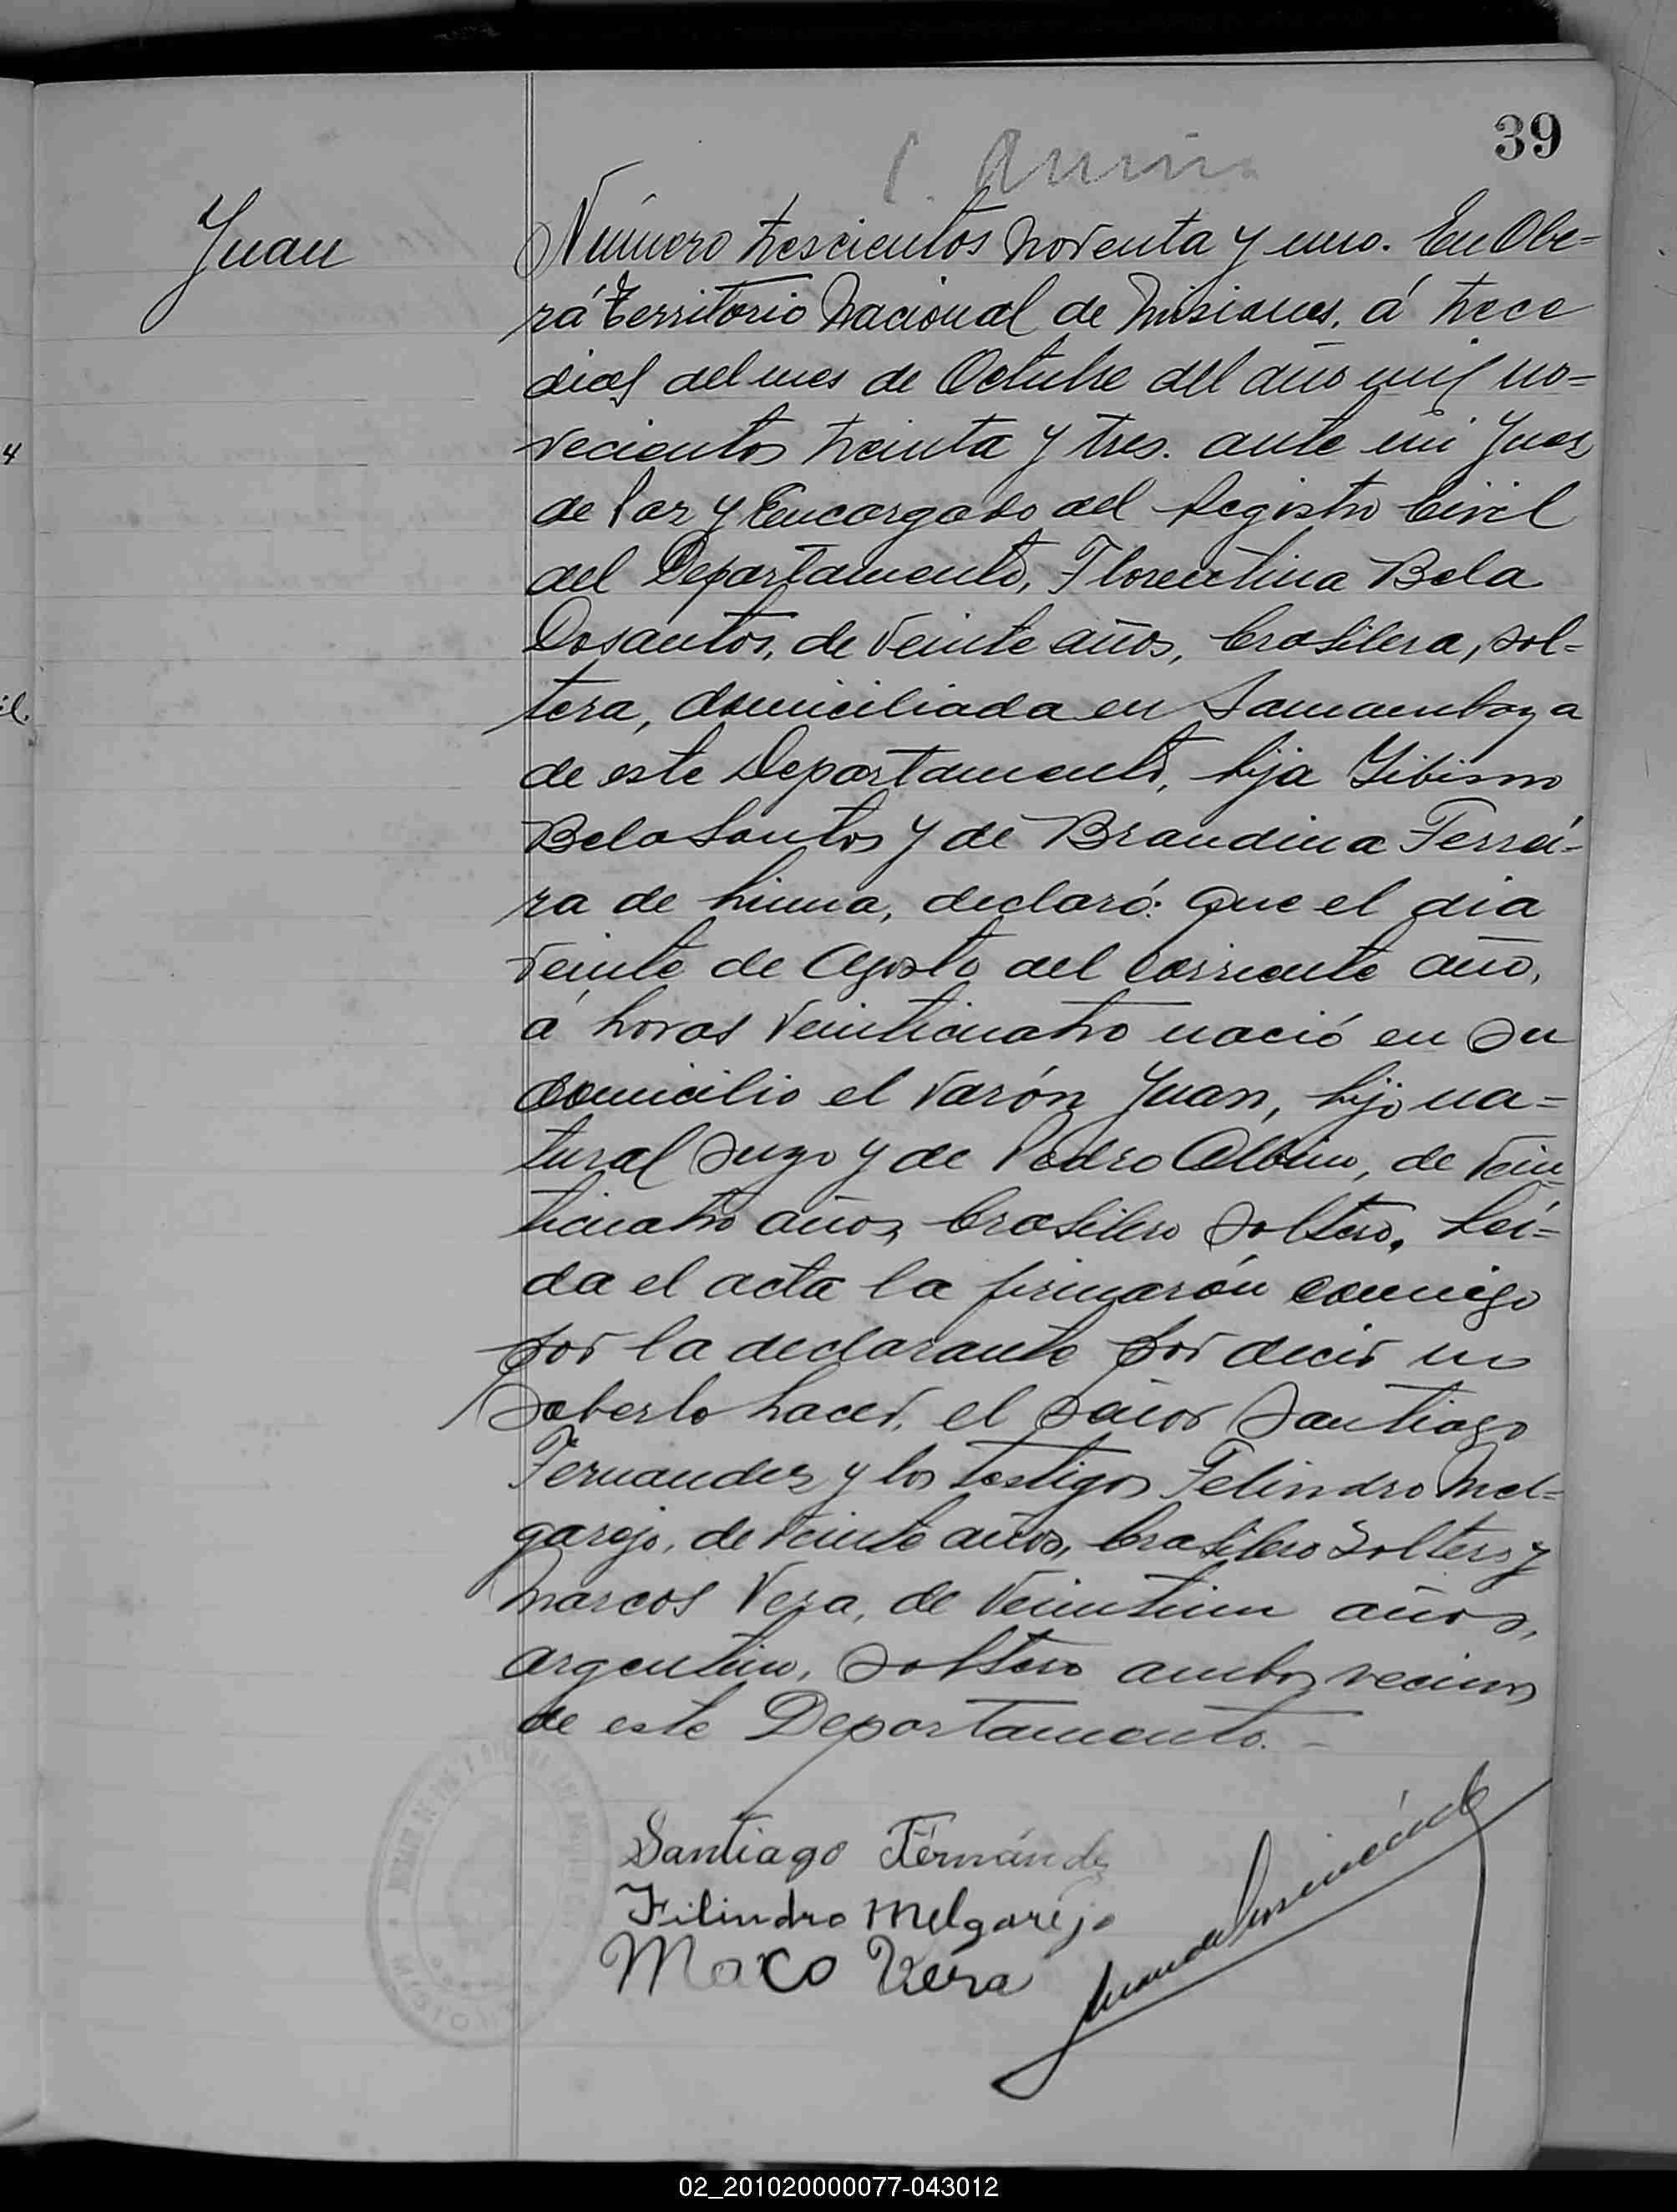 39
Juan
Número trescientos noventa y uno. En Obe=
rá Territorio Nacional de Misiones, á trece
dias del mes de Octubre del año mil no=
vecientos treinta y tres. ante mi Juez
de Paz y Encargado del Registro Civil
del Departamento, Florentina Bela
Dosantos, de veinte años, brasilera, sol=
tera, domiciliada en Samambaya
de este Departamento, hija
Belo Santos y de Brandina Ferrei-
ra de Lima, declaró: Que el dia
veinte de Agosto del corriente año,
á horas veinticuatro nació en su
domicilio el varón Juan, hijo na=
tural suyo y de Pedro Albino, de vein
ticuatro años, brasilero soltero. Lei=
da el acta la firmarón conmigo
por la declarante por decir no
saberlo hacer, el señor Santiago
Fernandez y los testigos Felindro Mel=
garejo, de veinte años, brasilero soltero y
Marcos Vera, de veintiun años,
argentino, soltero ambos vecinos
de este Departamento.-
Santiago Fernández
Filindro Melgarejo
Maco Vera
4
il.
02_201020000077-043012